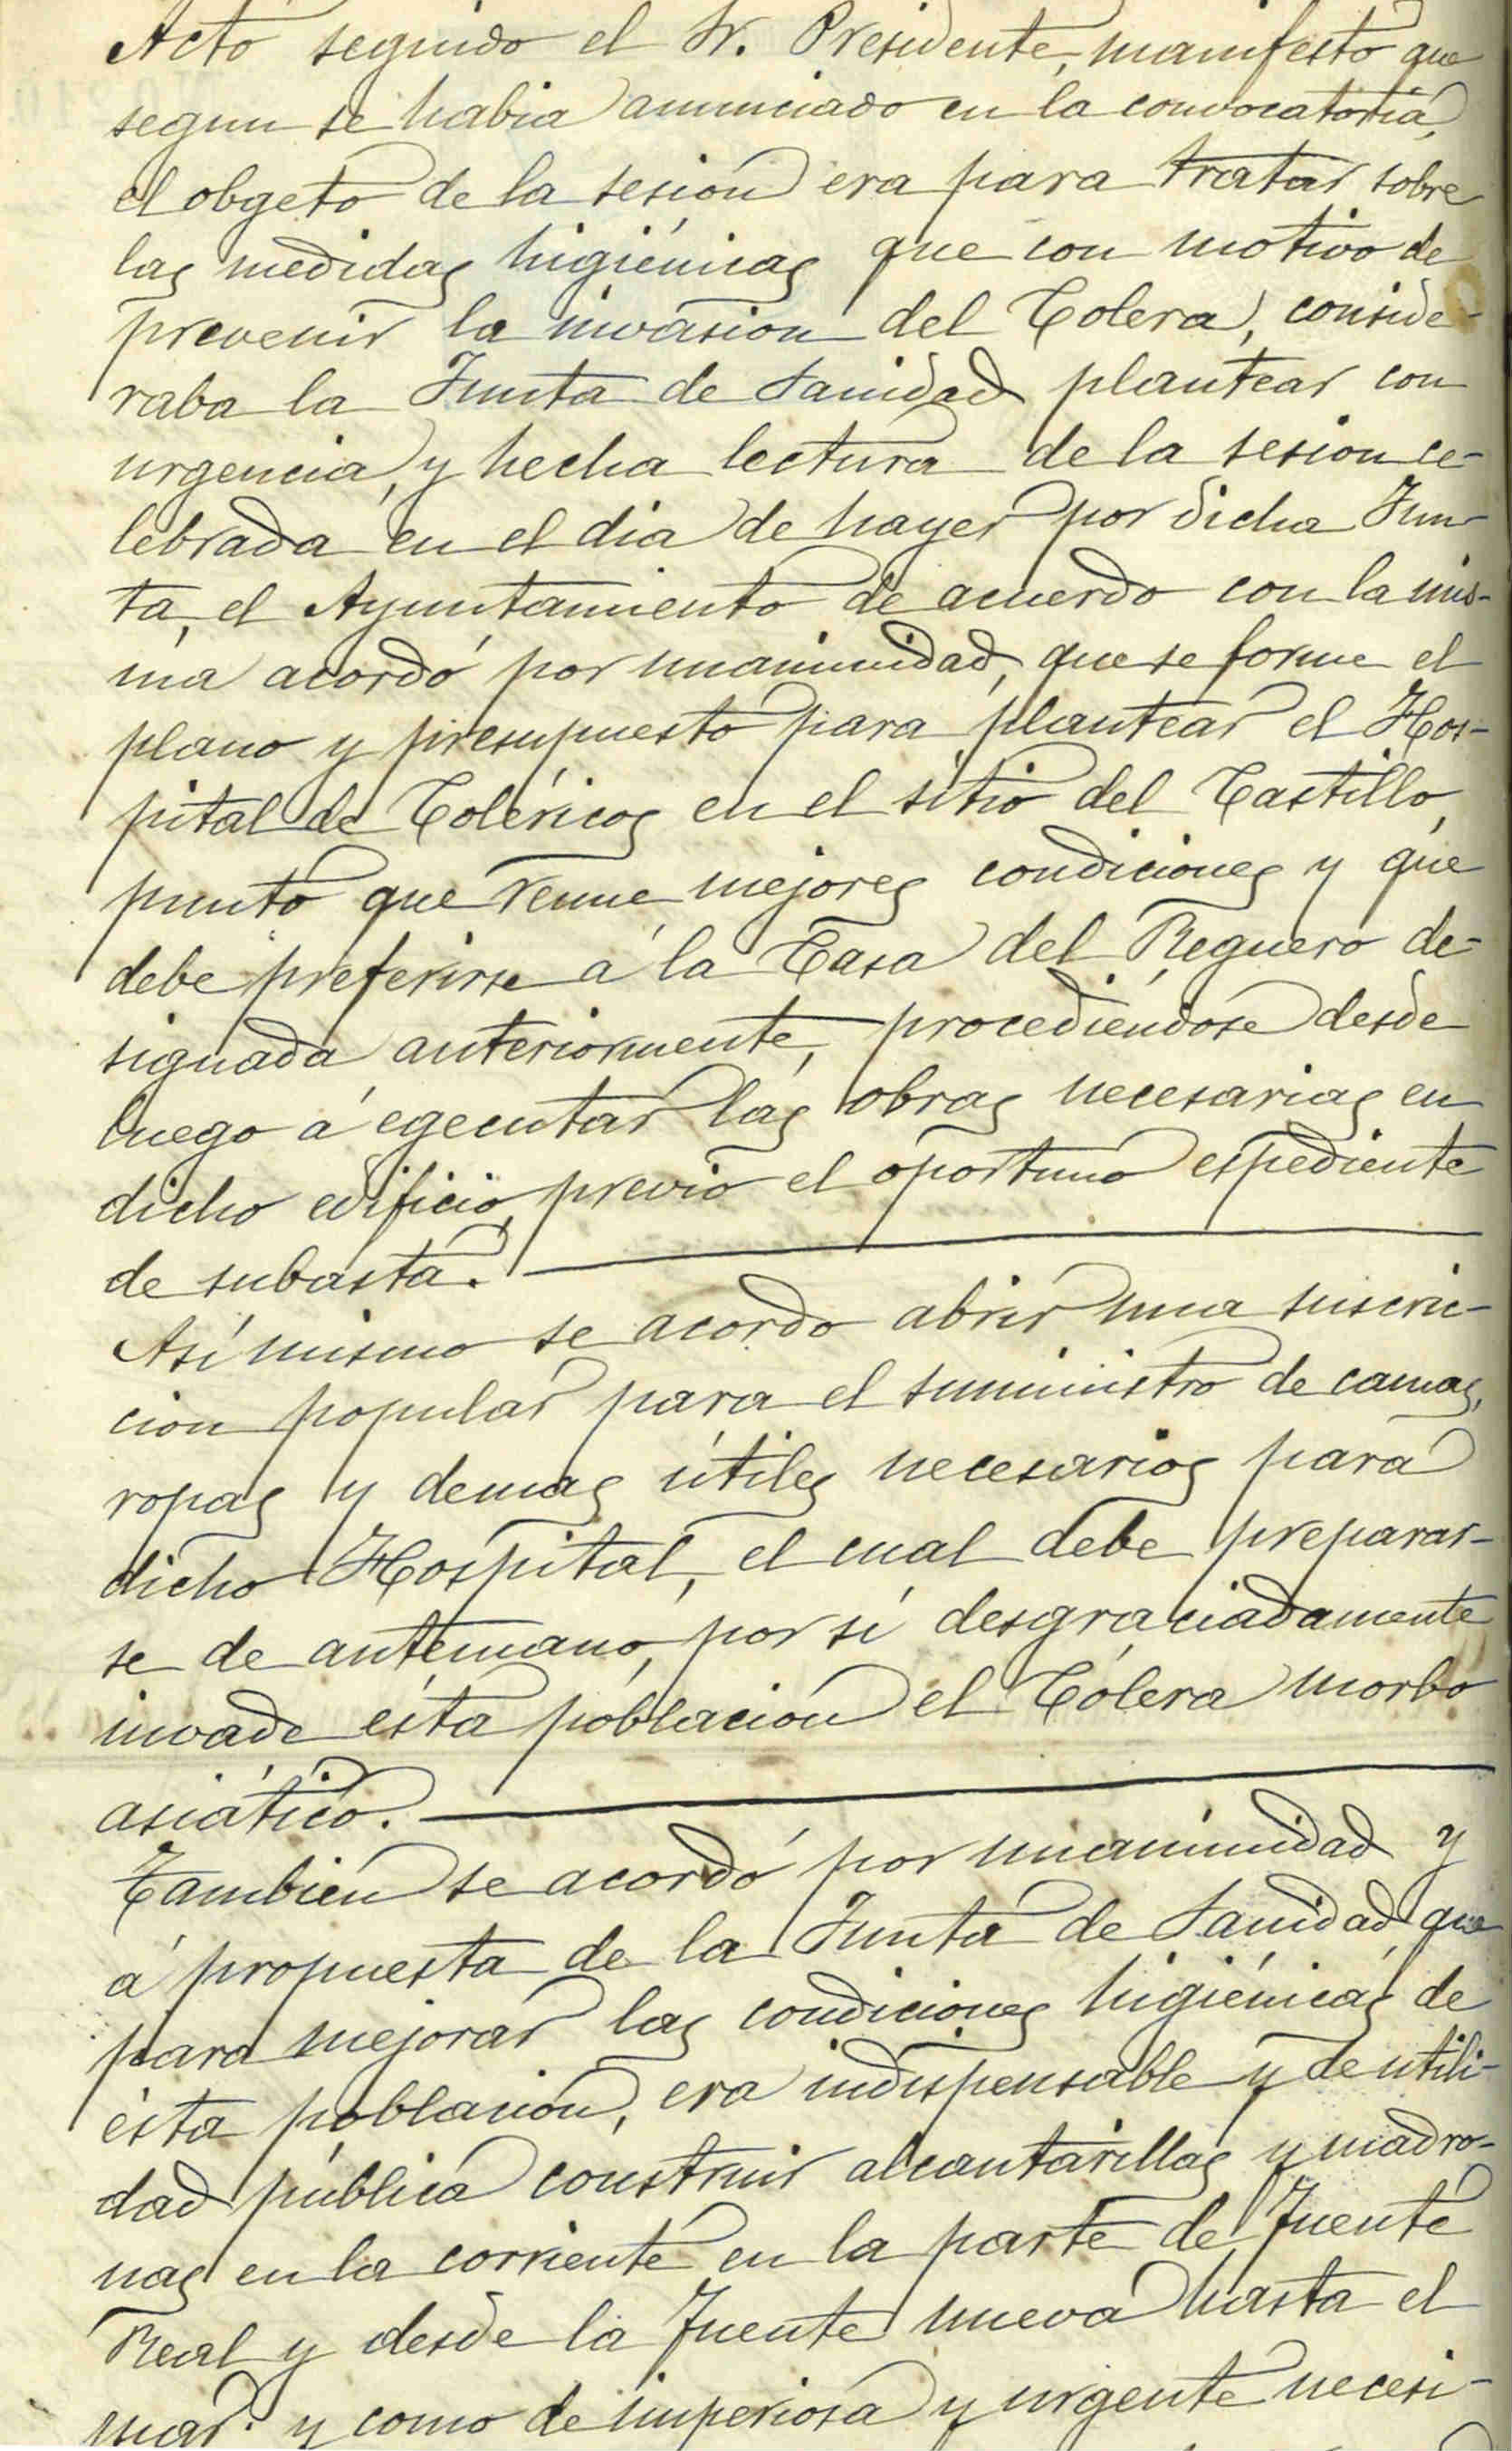 Acto seguido el Sr. Presidente, manifestó que
segun se habia anunciado en la convocatoria,
el obgeto de la sesion era para tratar sobre
las medidas higiénicas que con motivo de
prevenir la invasion del Cólera, conside-
raba la Junta de Sanidad plantear con
urgencia, y hecha lectura de la sesion ce-
lebrada en el dia de hayer por dicha Jun-
ta, el Ayuntamiento de acuerdo con la mis-
ma acordó por unanimidad, que se forme el
plano y presupuesto para plantear el Hos-
pital de Coléricos en el sitio del Castillo,
punto que reune mejores condiciones y que
debe preferirse á la Casa del Reguero de-
signada anteriormente, procediéndose desde
luego á egecutar las obras necesarias en
dicho edificio, previo el oportuno espediente
de subasta.
Así mismo se acordo abrir una suscric-
cion popular para el suministro de camas,
ropas y demas útiles necesarios para
dicho Hospital, el cual debe preparar-
se de antemano, por si desgraciadamente
invade ésta poblacion el Cólera morbo
asiático.
Tambien se acordó por unanimidad y
á propuesta de la Junta de Sanidad, que
para mejorar las condiciones higiénicas de
ésta poblacion, era indispensable y de utili-
dad pública construir alcantarillas y madro-
nas en la corriente en la parte de Fuente
Real y desde la Fuente nueva hasta el
mar: y como de imperiosa y urgente necesi-